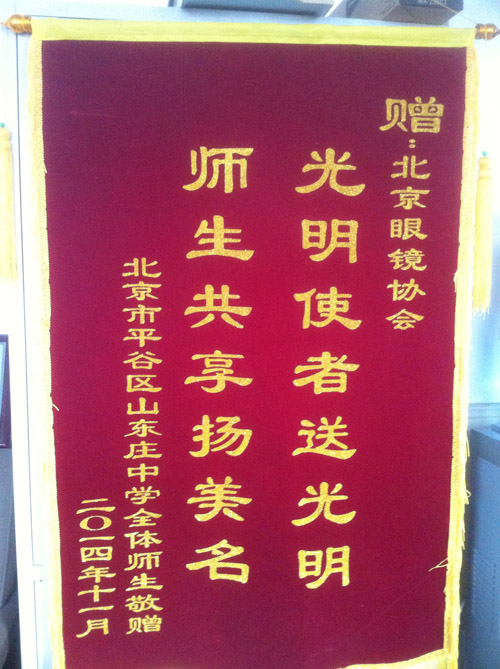 赠:北京眼镜协会
光明使者送光明
师生共享扬美名
北京市平谷区山东庄中学全体师生敬赠
二〇一四年十一月